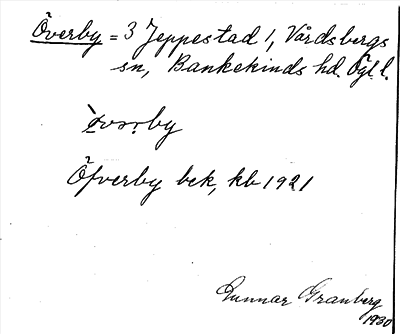 Överby = 3 Jeppestad 1, Vårdsbergs
sn, Bankekinds hd. Ögl. l.
Öfverby bek, kb 1921
Gunnar Granberg
1930